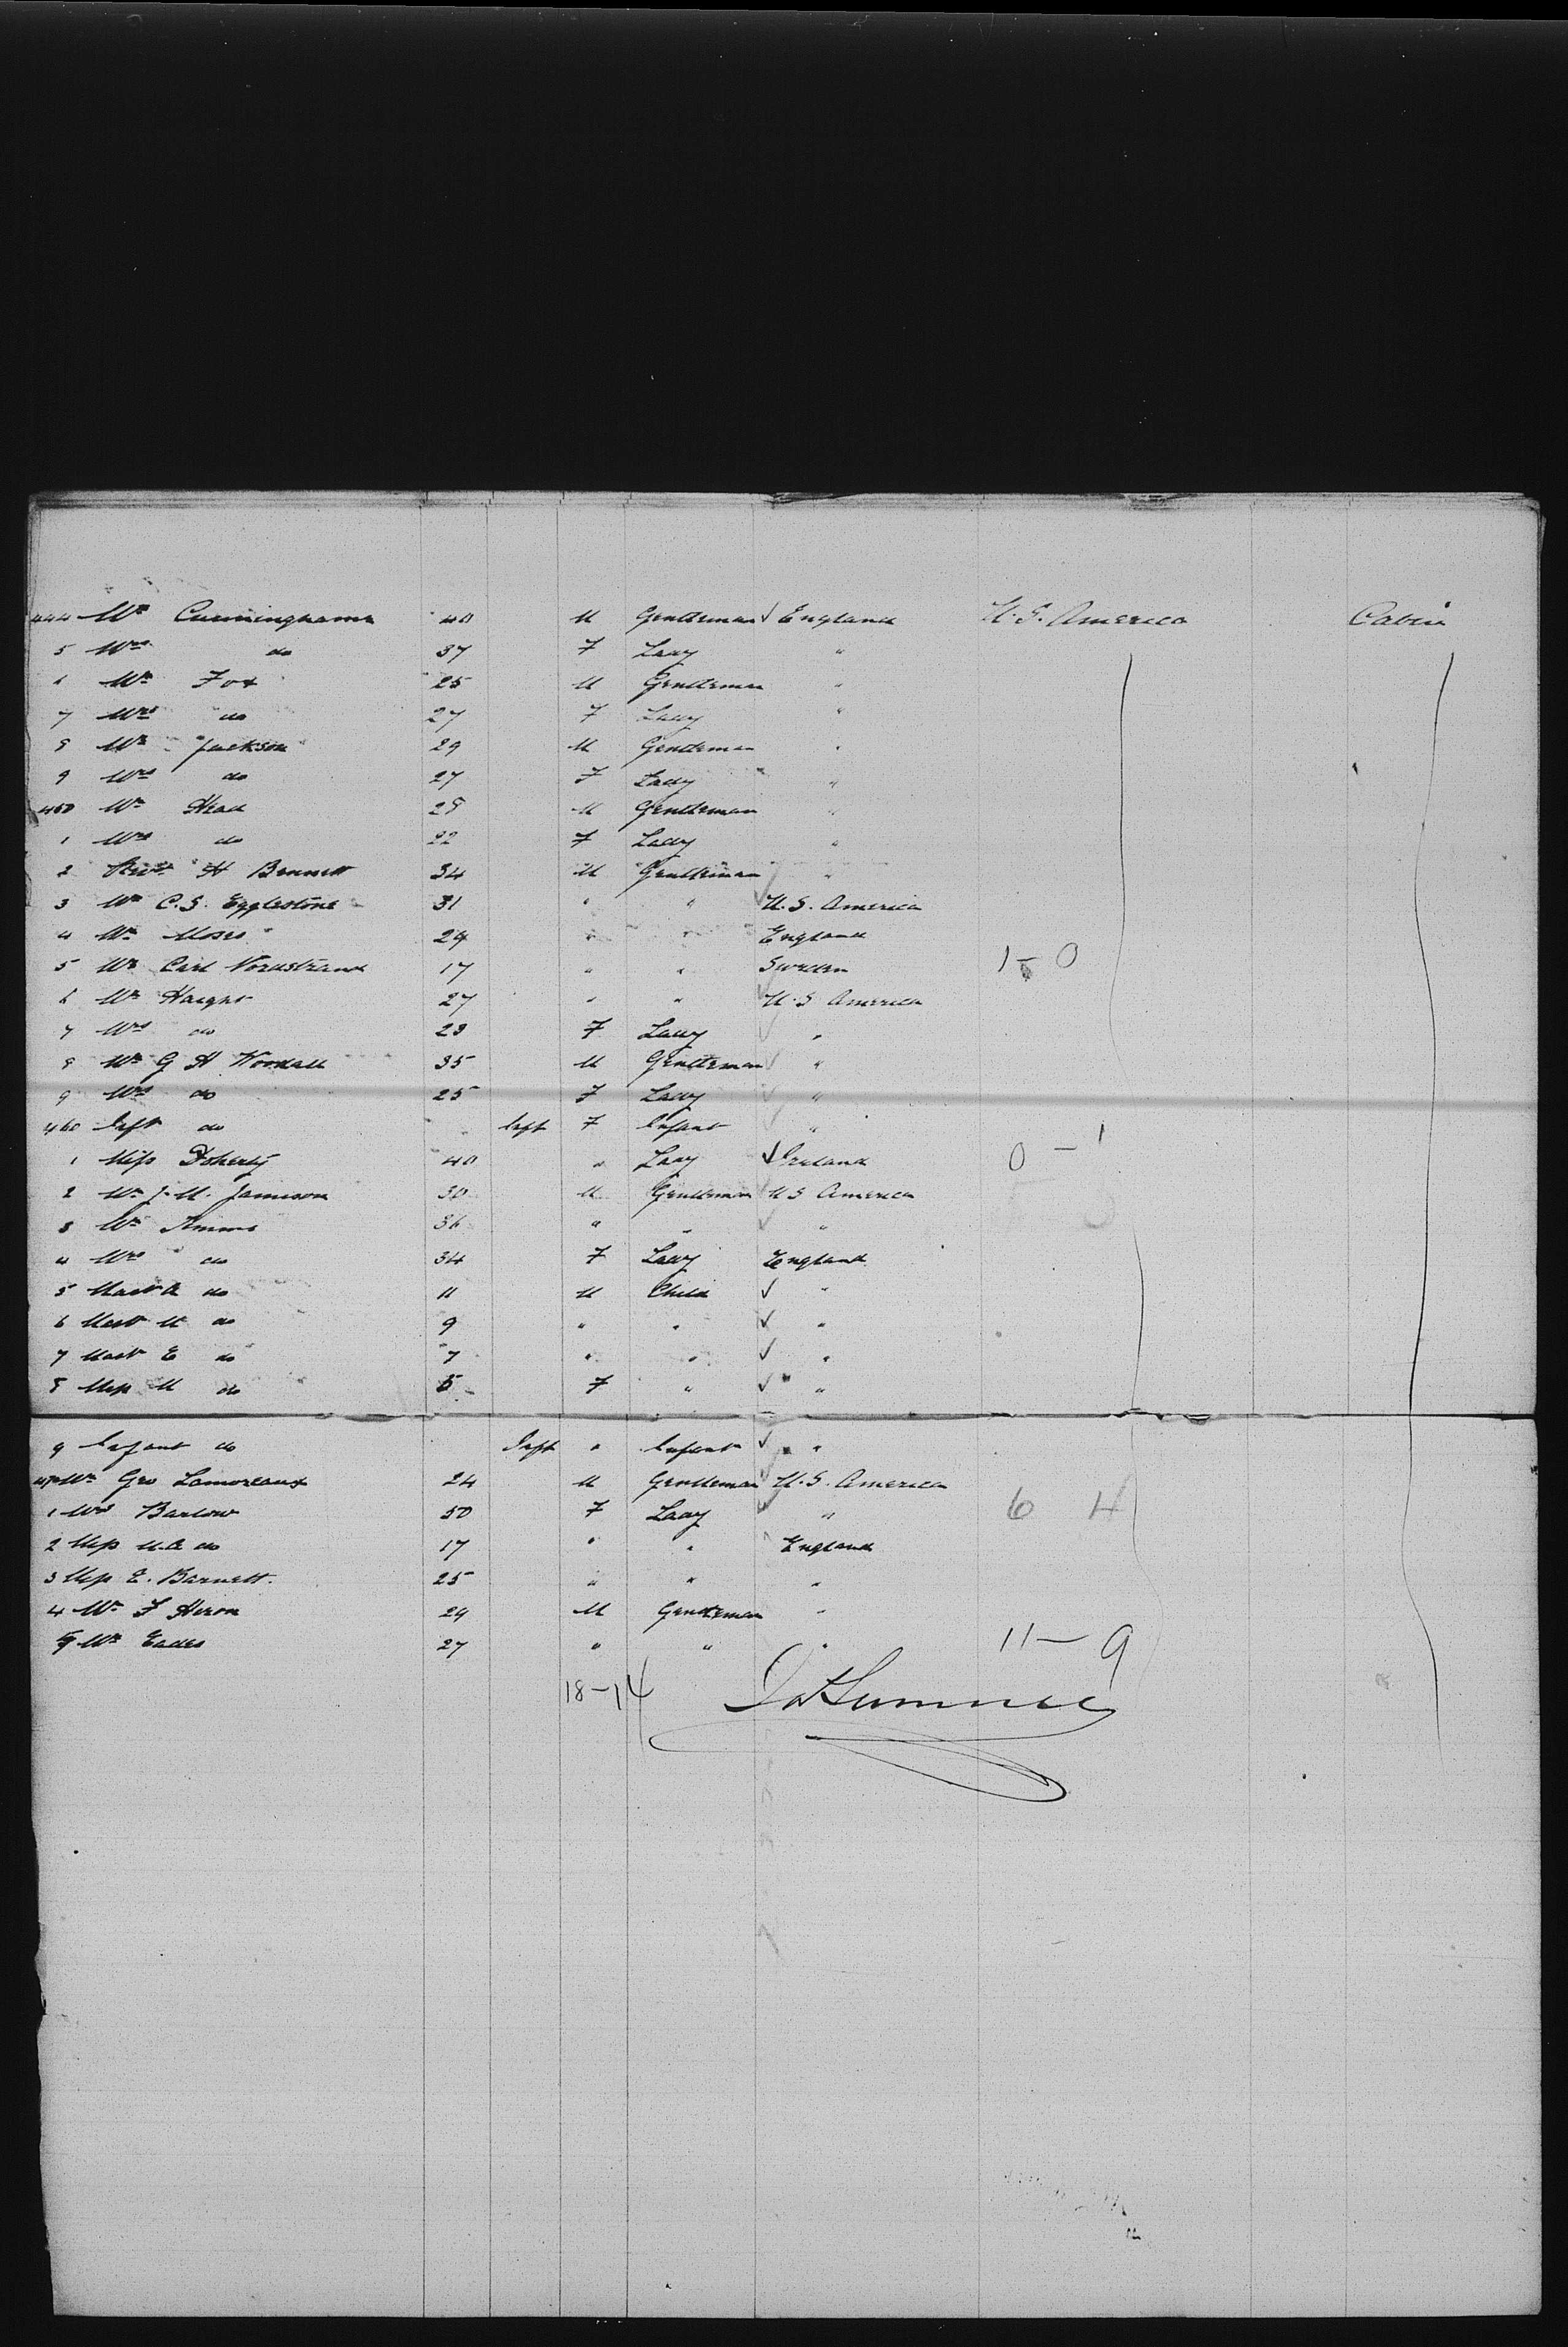 444 Mr Cunninghame 40 M Gentleman ✓ England U.S. America Cabin
5 Mrs do 37 F Lady "
6 Mr Fox 25 M Gentleman "
7 Mrs do 27 F Lady "
8 Mr Jackson 29 M Gentleman "
9 Mrs do 27 F Lady "
450 Mr Head 28 M Gentleman "
1 Mrs do 22 F Lady "
2 Revd H Bennett 34 M Gentleman "
3 Mr C.S. Egglestone 31 " " U.S. America
4 Mr Moses 29 " " England
5 Mr Carl Nordstrand 17 " " Sweden 1-0
6 Mr Haight 27 " " U.S America
7 Mrs do 23 F Lady "
8 Mr G H Woodall 35 M Gentleman "
9 Mrs do 25 F Lady "
460 Inft do Inft F Infant "
1 Miss Doherty 40 " Lady ✓ Ireland 0-1
2 Mr J. M. Jamison 30 M Gentleman U S America
3 Mr Timms 36 " " "
4 Mrs do 34 F Lady England
5 Mast A do 11 M Child ✓ "
6 Mast M do 9 " " ✓ "
7 Mast E do 7 " " ✓ "
8 Miss M do 5 F " ✓ "
9 Infant do Inft " Infant ✓ "
470 Mr Geo Lamoreaux 24 M Gentleman U.S. America
1 Mrs Barlow 50 F Lady " 6 4
2 Miss M.A do 17 " " England
3 Miss E. Barnett. 25 " " "
4 Mr F Heron 29 M Gentleman "
5 Mr Eades 27 " " " 11-9
18-14